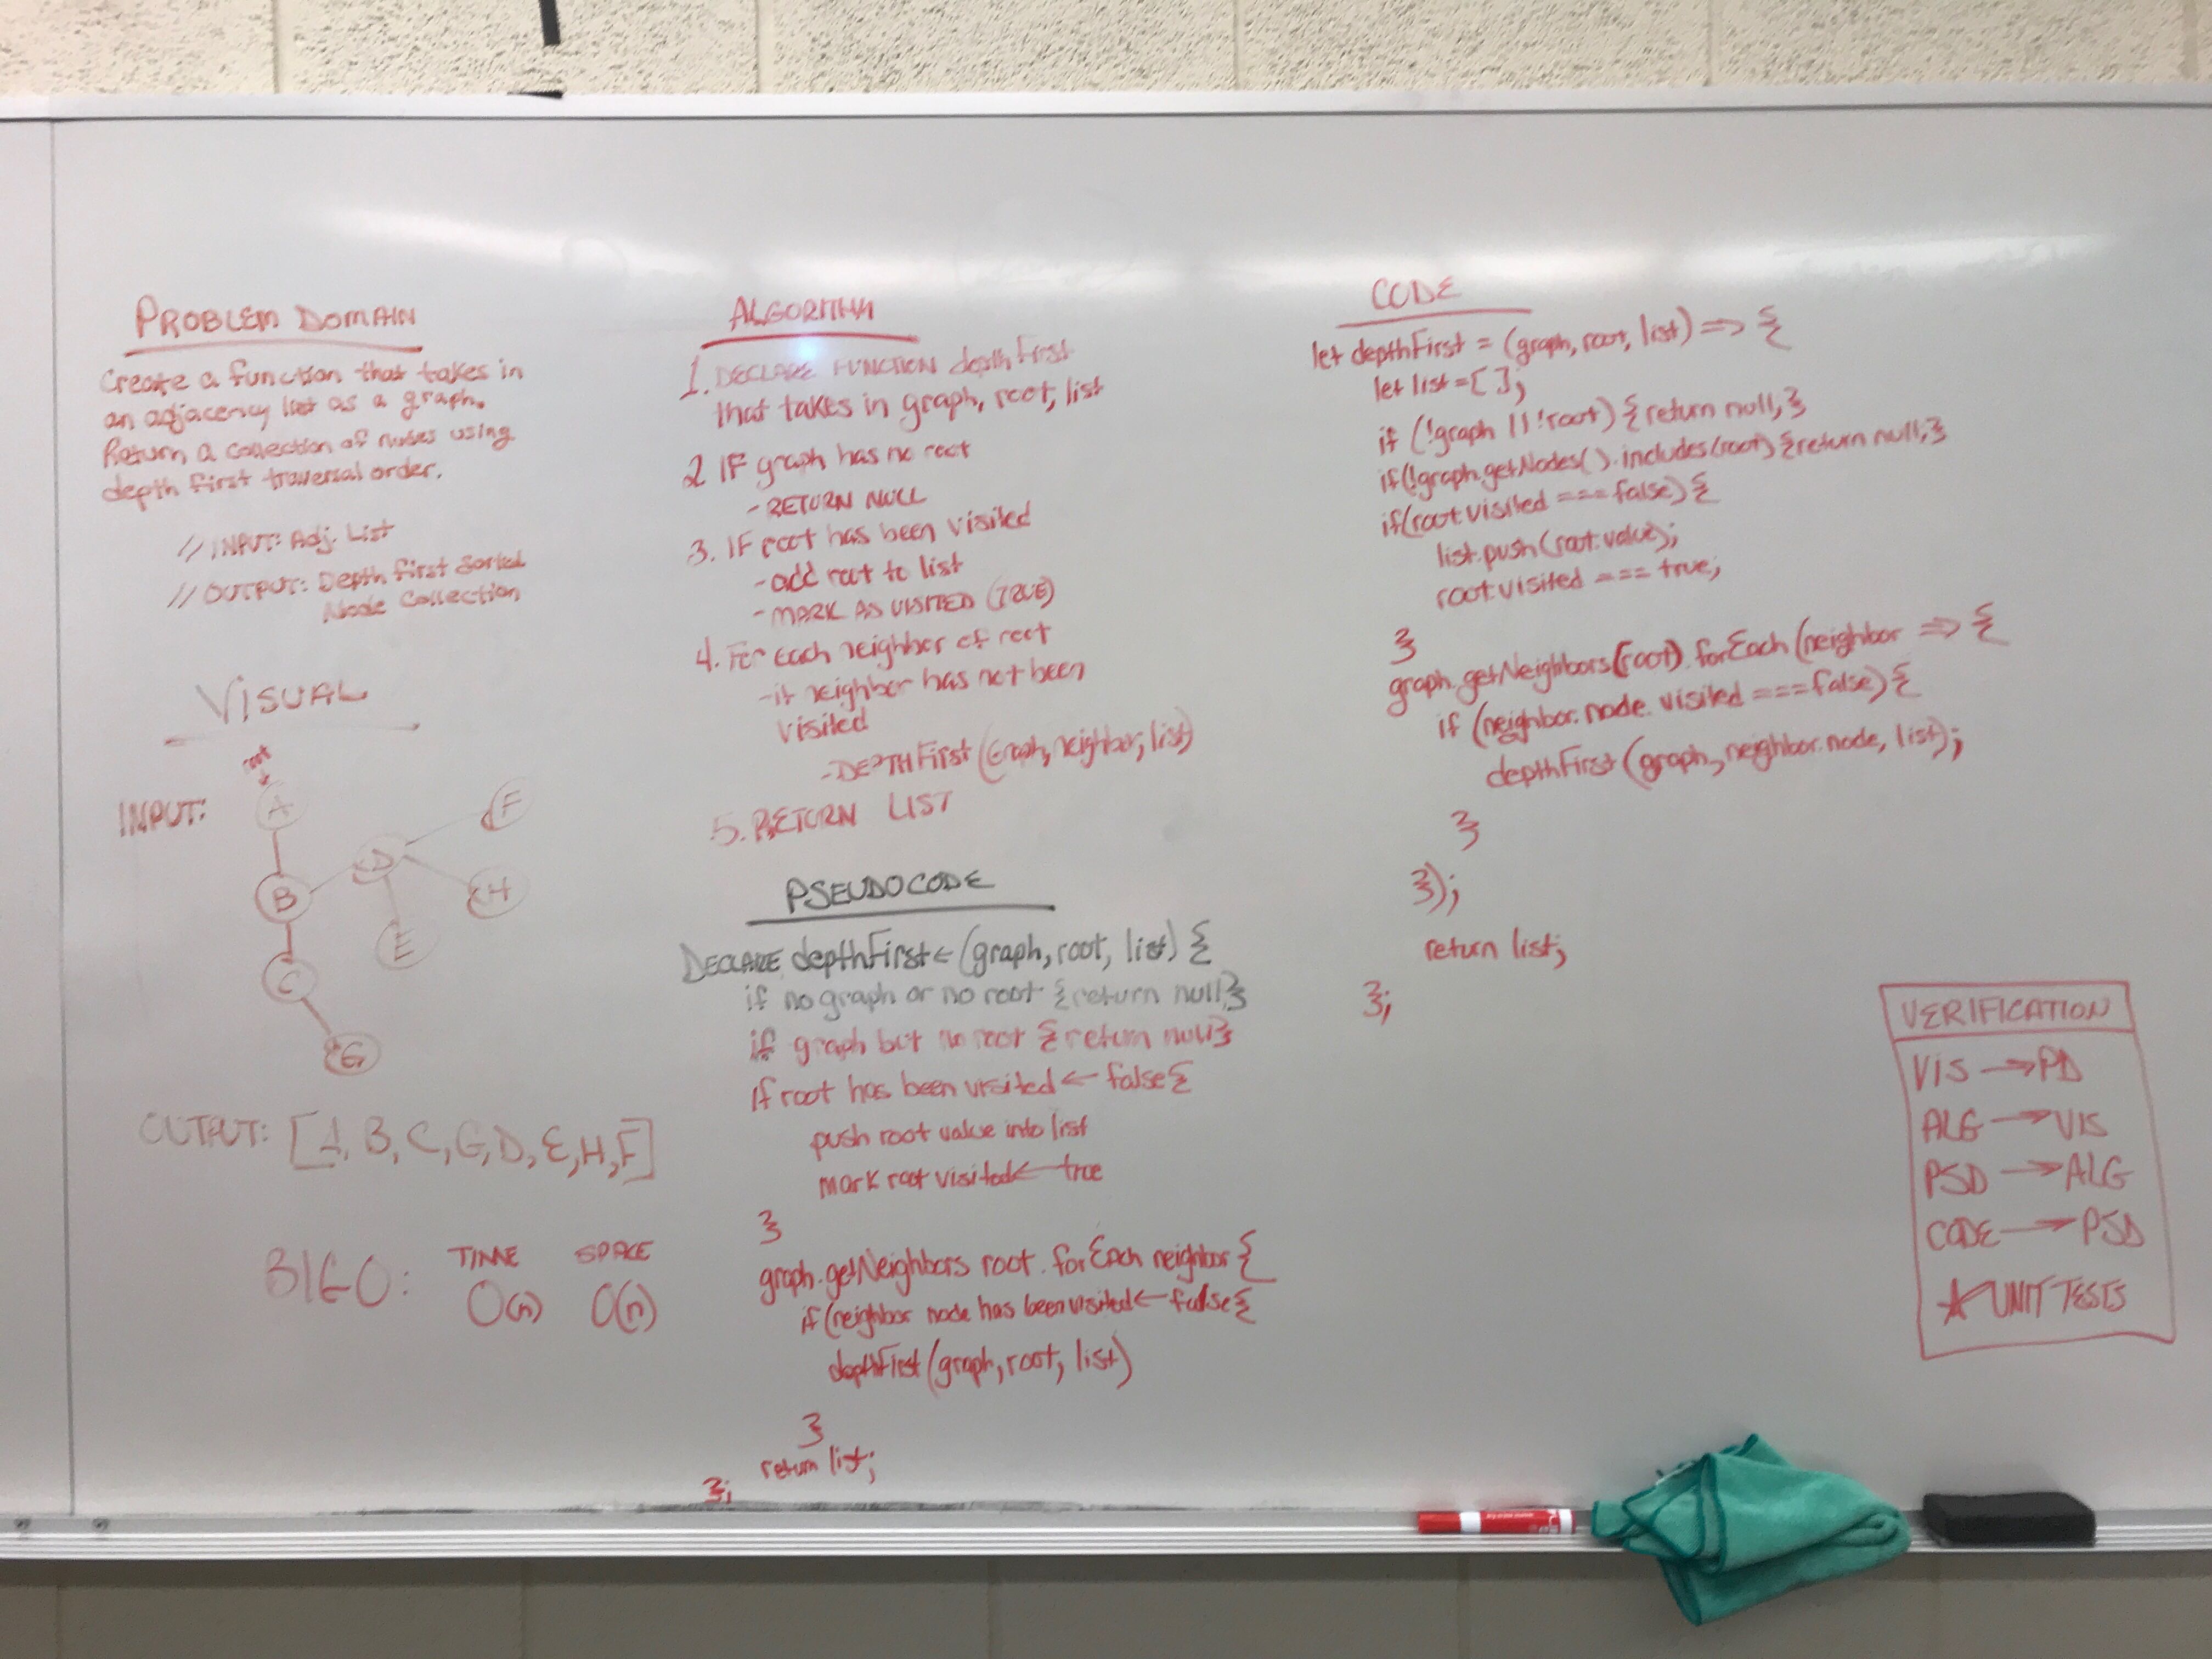 PROBLEM DOMAIN
Create a function that takes in
an adjacency list as a graph.
Return a collection of nodes using
depth first traversal order.
// INPUT: Adj. List
// OUTPUT: Depth first Sorted
Node Collection
VISUAL
root
INPUT:
A
B
C
G
D
E
F
H
OUTPUT: [A, B, C, G, D, E, H, F]
BIG O:
TIME
SPACE
O(n)
O(n)
ALGORITHM
1. DECLARE FUNCTION depthFirst
that takes in graph, root, list
2 IF graph has no root
- RETURN NULL
3. IF root has been visited
- add root to list
- MARK AS VISITED (TRUE)
4. For each neighbor of root
- if neighbor has not been
visited
- DEPTHFirst (Graph, neighbor, list)
5. RETURN LIST
PSEUDOCODE
DECLARE depthFirst ← (graph, root, list) {
if no graph or no root {return null}
if graph but no root {return null}
if root has been visited ← false {
push root value into list
mark root visited ← true
}
graph.getNeighbors root.forEach neighbor {
if (neighbor node has been visited ← false {
depthFirst (graph, root, list)
}
return list;
};
CODE
let depthFirst = (graph, root, list) => {
let list = [];
if (!graph || !root) { return null; }
if (!graph.getNodes().includes(root) { return null; }
if (root.visited === false) {
list.push(root.value);
root.visited === true;
}
graph.getNeighbors(root).forEach (neighbor => {
if (neighbor.node.visited === false) {
depthFirst (graph, neighbor.node, list);
}
});
return list;
};
VERIFICATION
VIS → PD
ALG → VIS
PSD → ALG
CODE → PSD
☆ UNIT TESTS